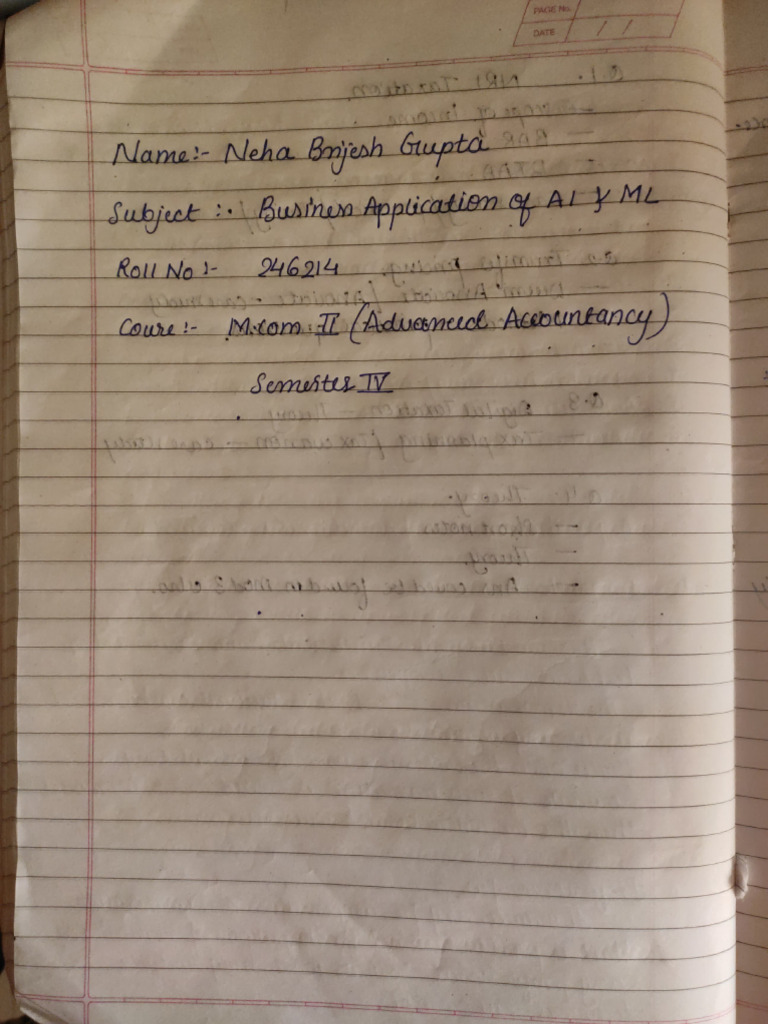 PAGE No.
DATE / /
Name:- Neha Brijesh Gupta
Subject :- Business Application of AI & ML
Roll No :- 246214
Coure :- M.com II (Advanced Accountancy)
Semester IV